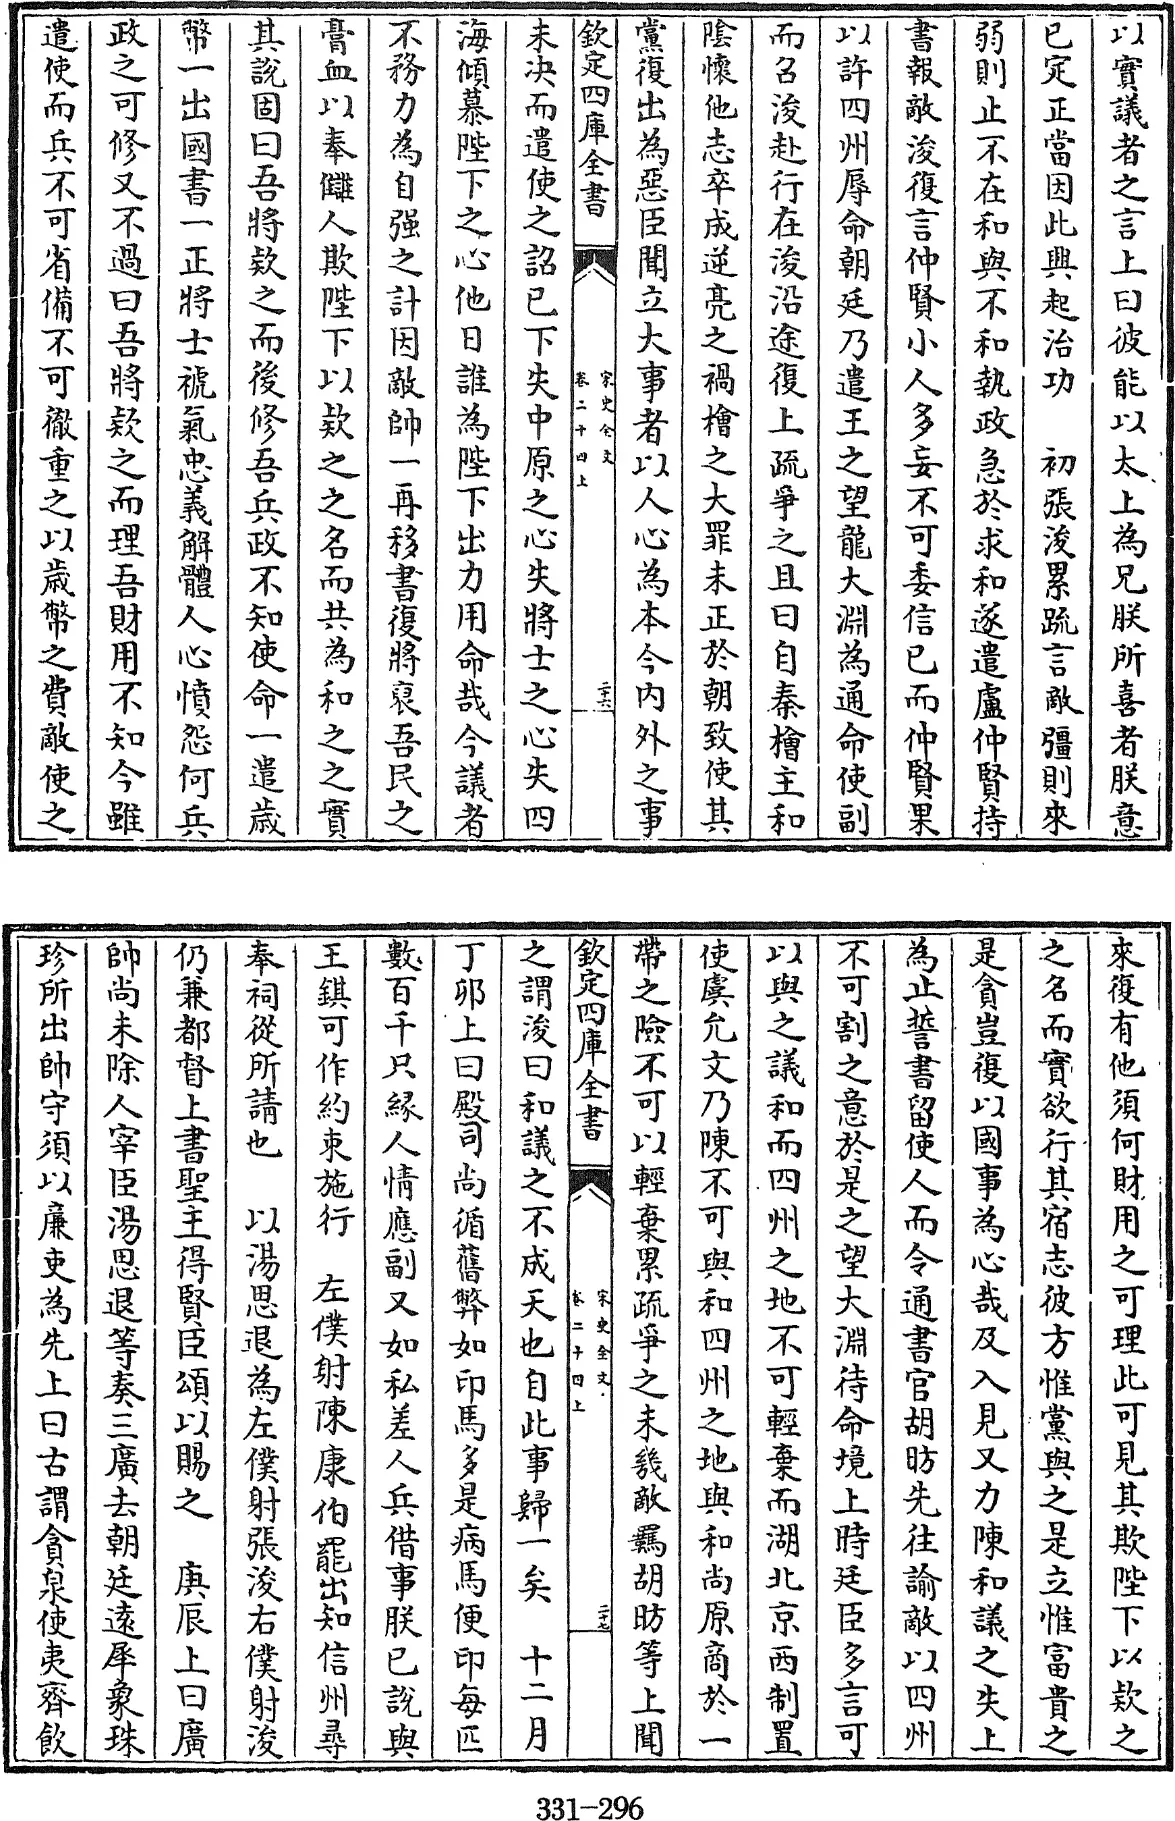 以實議者之言上曰彼能以太上為兄朕所喜者朕意
已定正當因此興起治功　初張浚累疏言敵彊則來
弱則止不在和與不和執政急於求和遂遣盧仲賢持
書報敵浚復言仲賢小人多妄不可委信已而仲賢果
以許四州辱命朝廷乃遣王之望龍大淵為通命使副
而召浚赴行在浚沿途復上疏爭之且曰自秦檜主和
陰懷他志卒成逆亮之禍檜之大罪未正於朝致使其
黨復出為惡臣聞立大事者以人心為本今內外之事
欽定四庫全書
宋史全文
卷二十四上
二十六
未决而遣使之詔已下失中原之心失將士之心失四
海傾慕陛下之心他日誰為陛下出力用命哉今議者
不務力為自强之計因敵帥一再移書復將裒吾民之
膏血以奉讎人欺陛下以欵之之名而共為和之之實
其說固曰吾將欵之而後修吾兵政不知使命一遣歲
幣一出國書一正將士褫氣忠義解體人心憤怨何兵
政之可修又不過曰吾將欵之而理吾財用不知今雖
遣使而兵不可省備不可徹重之以歲幣之費敵使之
來復有他須何財用之可理此可見其欺陛下以欵之
之名而實欲行其宿志彼方惟黨與之是立惟富貴之
是貪豈復以國事為心哉及入見又力陳和議之失上
為止誓書留使人而令通書官胡昉先往諭敵以四州
不可割之意於是之望大淵待命境上時廷臣多言可
以與之議和而四州之地不可輕棄而湖北京西制置
使虞允文乃陳不可與和四州之地與和尚原商於一
帶之險不可以輕棄累疏爭之未幾敵羈胡昉等上聞
欽定四庫全書
宋史全文
卷二十四上
二十七
之謂浚曰和議之不成天也自此事歸一矣　十二月
丁卯上曰殿司尚循舊弊如印馬多是病馬便印每匹
數百千只緣人情應副又如私差人兵借事朕已說與
王錤可作約束施行　左僕射陳康伯罷出知信州尋
奉祠從所請也　以湯思退為左僕射張浚右僕射浚
仍兼都督上書聖主得賢臣頌以賜之　庚辰上曰廣
帥尚未除人宰臣湯思退等奏三廣去朝廷遠犀象珠
珍所出帥守須以廉吏為先上曰古謂貪泉使夷齊飲
331-296